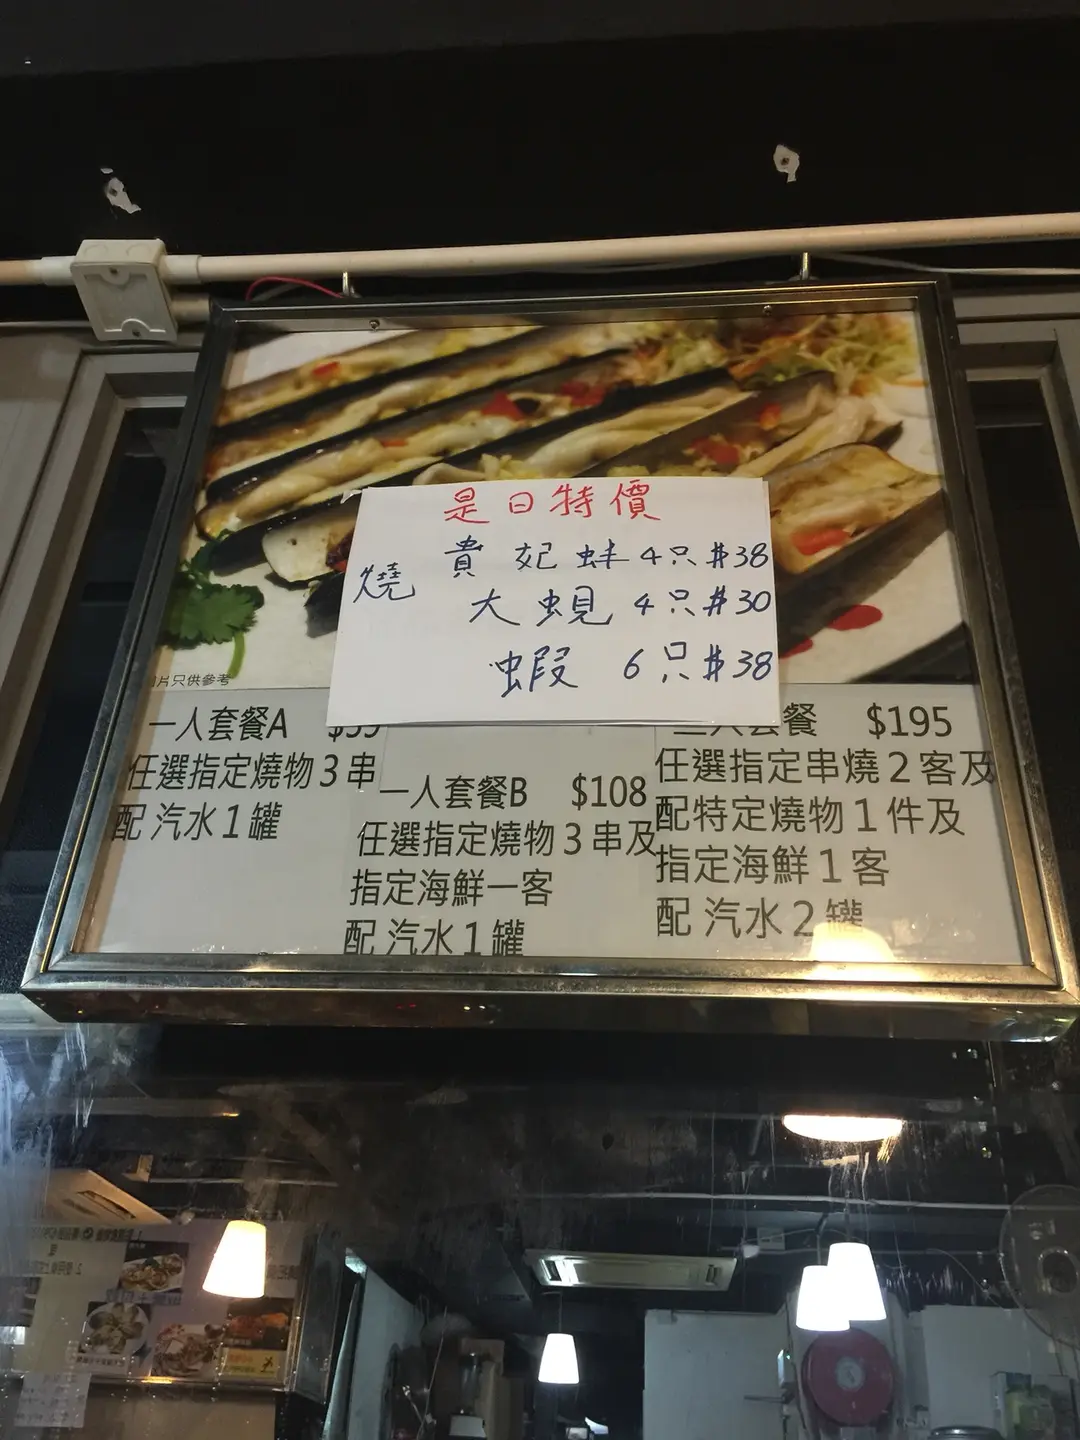 是日特價
燒
貴妃蚌 4只 $38
大蜆 4只 $30
蝦 6只 $38
片只供參考
一人套餐A
任選指定燒物3串
配 汽水1罐
一人套餐B $108
任選指定燒物3串及
指定海鮮一客
配 汽水1罐
人套餐 $195
任選指定串燒2客及
配特定燒物1件及
指定海鮮1客
配 汽水2罐